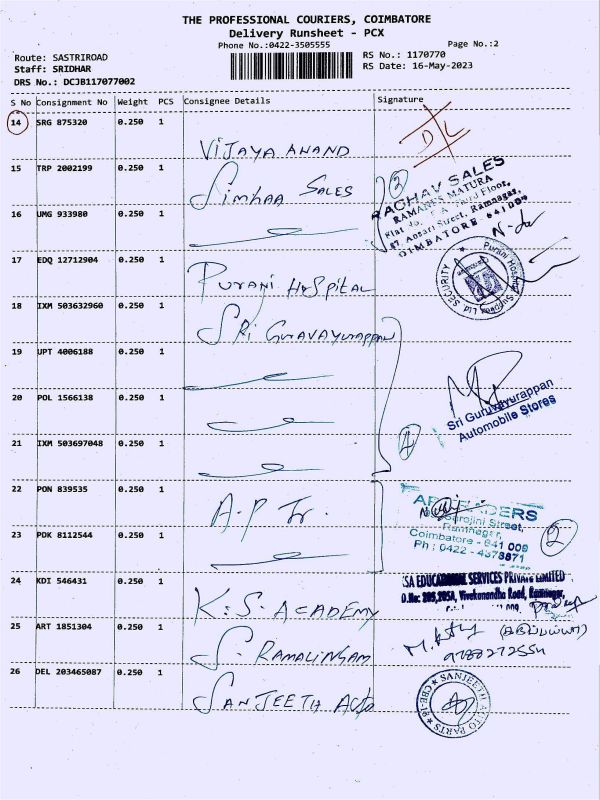 THE PROFESSIONAL COURIERS, COIMBATORE
Delivery Runsheet - PCX
Phone No.:0422-3505555
Page No.:2
Route: SASTRIROAD
Staff: SRIDHAR
DRS No.: DCJB117077002
RS No.: 1170770
RS Date: 16-May-2023
S No Consignment No Weight PCS Consignee Details Signature
14 SRG 875320 0.250 1
VIJAYA ANAND
D/L
15 TRP 2002199 0.250 1
Simhaa SALES
2
RAGHAV SALES
RAMANI'S MATURA
Third Floor,
67, Ansari Street, Ramnagar,
COIMBATORE - 641 009
16 UMG 933980 0.250 1
17 EDQ 12712904 0.250 1
Purani HoSpital
SECURITY
18 IXM 503632960 0.250 1
SRI Guruvayurappan
19 UPT 4006188 0.250 1
20 POL 1566138 0.250 1
Sri Guruvayurappan
Automobile Stores
21 IXM 503697048 0.250 1
4
22 PON 839535 0.250 1
A.P Tr.
Sarojini Street,
Ramnagar,
Coimbatore - 641 009
Ph : 0422 - 4378871
2
23 POK 8112544 0.250 1
24 KDI 546431 0.250 1
K.S. ACADEMY
SA EDUCATIONAL SERVICES PRIVATE LIMITED
D.No: 205,205A, Vivekanandha Road, Ramnagar,
25 ART 1851304 0.250 1
S. RAMALINGAM
9788272554
26 DEL 203465087 0.250 1
SANJEETH Auto
SANJEETH AUTO PARTS